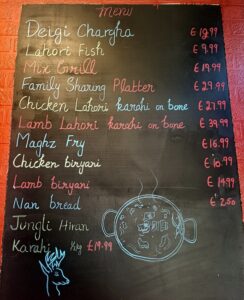 Menu
Deigi Chargha £ 19.99
Lahori Fish £ 9.99
Mix Grill £ 19.99
Family Sharing Platter £ 29.99
Chicken Lahori karahi on bone £ 27.99
Lamb Lahori karahi on bone £ 39.99
Maghz Fry £ 16.99
Chicken biryari £ 10.99
Lamb biryari £ 14.99
Nan bread £ 2.50
Jungli Hiran
Karahi ½kg £19.99